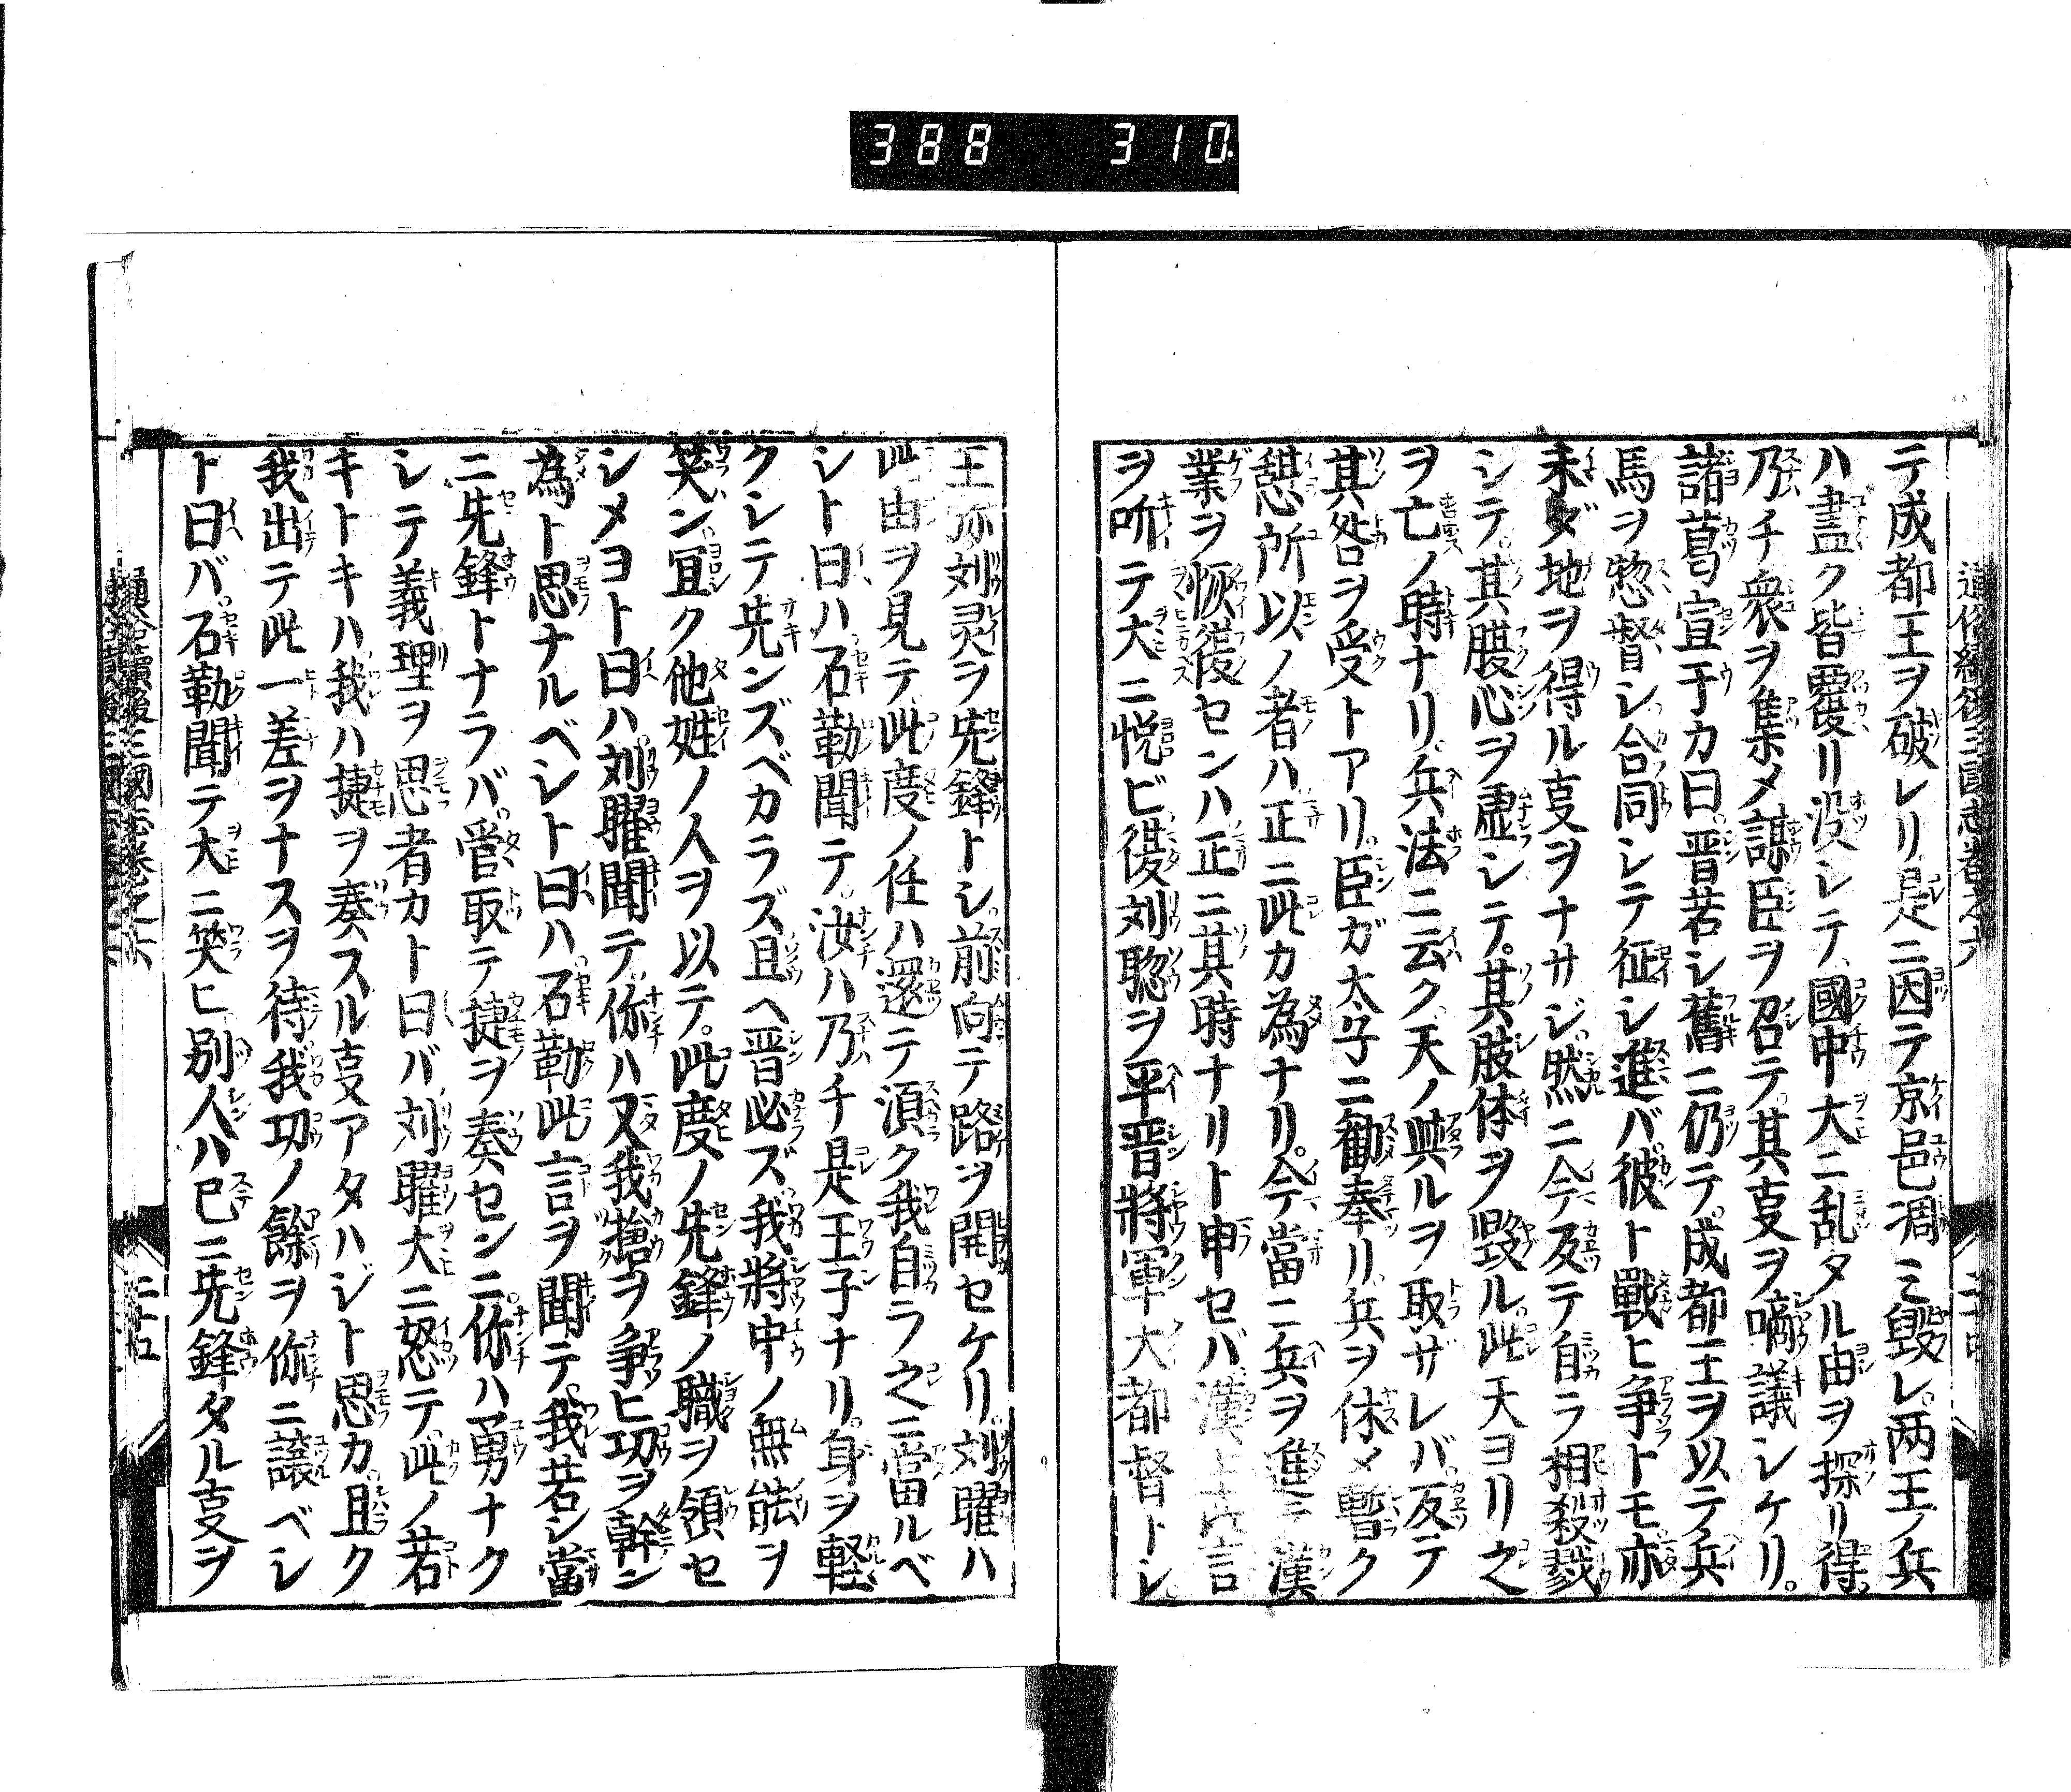 388 310
通俗續後三國志卷之六 二十四
テ成都王ヲ破レリ是ニ因テ京邑凋ミ毀レ。两王ノ兵
ハ盡ク皆覆リ没シテ國中大ニ乱タル由ヲ探リ得。
乃チ衆ヲ集メ謀臣ヲ召テ。其叓ヲ啇議シケリ。
諸葛宣于カ曰。晋若シ舊ニ仍テ。成都王ヲ以テ兵
馬ヲ惣督シ合同シテ征シ進バ。彼ト戰ヒ争トモ亦
未ダ地ヲ得ル叓ヲナサジ。然ニ今反テ自ラ相殺戮
シテ。其腹心ヲ虚シテ。其肢体ヲ毀ル。此天ヨリ之
ヲ亡ノ時ナリ。兵法ニ云ク。天ノ與ルヲ取ザレバ反テ
其咎ヲ受トアリ。臣ガ太子ニ勧奉リ。兵ヲ休メ暫ク
憇所以ノ者ハ正ニ此カ為ナリ。今當ニ兵ヲ進ミ漢
業ヲ恢復センハ正ニ其時ナリト申セバ。漢主言
ヲ听テ大ニ悦ビ復刘聡ヲ平晋將軍大都督トシ。
王弥刘灵ヲ先鋒トシ。前向テ路ヲ開セケリ。刘曜ハ
此由ヲ見テ。此度ノ任ハ還テ須ク我自ラ之ニ當ルベ
シト曰ハ。石勒聞テ。汝ハ乃チ是王子ナリ。身ヲ軽
クシテ先ンズベカラズ。且ヘ晋必ズ。我將中ノ無能ヲ
笑ン。宜ク他姓ノ人ヲ以テ。此度ノ先鋒ノ職ヲ領セ
シメヨト曰ハ。刘曜聞テ。你ハ又我搶ヲ争ヒ功ヲ幹ン
為ト思ナルベシト曰ハ。石勒此言ヲ聞テ。我若シ當
ニ先鋒トナラバ。管取テ捷ヲ奏センニ。你ハ勇ナク
シテ義理ヲ思者カト曰バ。刘曜大ニ怒テ。此ノ若
キトキハ我ハ捷ヲ奏スル叓アタハジト思カ。且ク
我出テ此一差ヲナスヲ待。我功ノ餘ヲ你ニ譲ベシ
ト曰バ。石勒聞テ大ニ笑ヒ。别人ハ已ニ先鋒タル叓ヲ
續後三國志卷之六 二十五